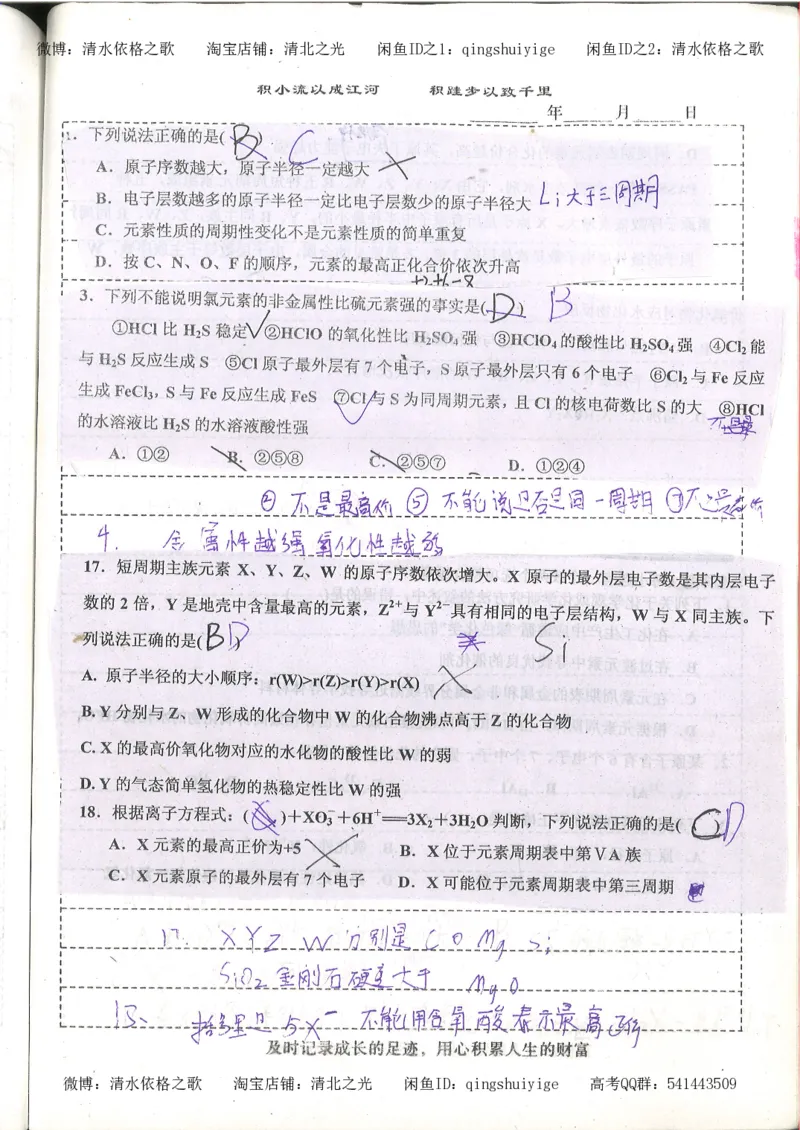 微博：清水依格之歌 淘宝店铺：清北之光 闲鱼ID之1：qingshuiyige 闲鱼ID之2：清水依格之歌
积小流以成江河 积跬步以致千里
年 月 日
1. 下列说法正确的是( B ) C
A．原子序数越大，原子半径一定越大
B．电子层数越多的原子半径一定比电子层数少的原子半径大 Li大于三周期
C．元素性质的周期性变化不是元素性质的简单重复
D．按 C、N、O、F 的顺序，元素的最高正化合价依次升高
3．下列不能说明氯元素的非金属性比硫元素强的事实是( D ) B
①HCl 比 H₂S 稳定 ②HClO 的氧化性比 H₂SO₄ 强 ③HClO₄ 的酸性比 H₂SO₄ 强 ④Cl₂ 能
与 H₂S 反应生成 S ⑤Cl 原子最外层有 7 个电子，S 原子最外层只有 6 个电子 ⑥Cl₂ 与 Fe 反应
生成 FeCl₃，S 与 Fe 反应生成 FeS ⑦Cl 与 S 为同周期元素，且 Cl 的核电荷数比 S 的大 ⑧HCl
的水溶液比 H₂S 的水溶液酸性强 不是最
A．①② B．②⑤⑧ C．②⑤⑦ D．①②④
② 不是最高价 ⑤ 不能说是否是同一周期
4. 金属性越强 氧化性越弱
17．短周期主族元素 X、Y、Z、W 的原子序数依次增大。X 原子的最外层电子数是其内层电子
数的 2 倍，Y 是地壳中含量最高的元素，Z²⁺与 Y²⁻具有相同的电子层结构，W 与 X 同主族。下
列说法正确的是( B D Si
A. 原子半径的大小顺序：r(W)>r(Z)>r(Y)>r(X)
B. Y 分别与 Z、W 形成的化合物中 W 的化合物沸点高于 Z 的化合物
C. X 的最高价氧化物对应的水化物的酸性比 W 的弱
D. Y 的气态简单氢化物的热稳定性比 W 的强
18．根据离子方程式：( )＋XO₃⁻＋6H⁺═3X₂＋3H₂O 判断，下列说法正确的是( C D
A．X 元素的最高正价为+5 B．X 位于元素周期表中第ⅤA 族
C．X 元素原子的最外层有 7 个电子 D．X 可能位于元素周期表中第三周期
17. X Y Z W 分别是 C O Mg Si
SiO₂ 金刚石硬度大于 MgO
18、 括号里是 5X⁻ 不能用含氧酸表示最高正价
及时记录成长的足迹，用心积累人生的财富
微博：清水依格之歌 淘宝店铺：清北之光 闲鱼ID：qingshuiyige 高考QQ群：541443509